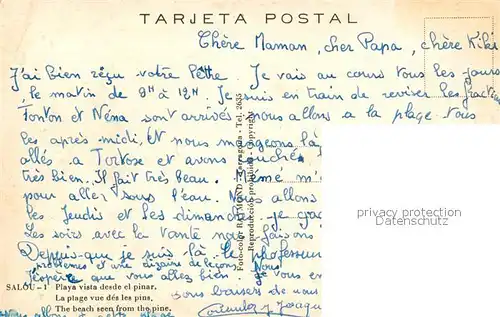 TARJETA POSTAL
Chère Maman, cher Papa, chère Kiki
J'ai bien reçu votre lettre. Je vais au cours tous les jours
le matin de 9H à 12H. Je suis en train de reviser les fractions
Tonton et Néna sont arrivés nous allons a la plage tous
les après-midi, et nous mangeons là
allés a Tortose et avons couché
très bien. Il fait très beau. Mémé m'
pour aller sous l'eau. Nous allons
les Jeudis et les dimanches
les soirs avec la tante nous faisons
Depuis que je suis là le professeur
problèmes et une dizaine de leçons. Nous
J'espère que vous allez bien. Je vous en
sous baisers de nous
Foto-color RAYMOND - Tarragona - Tel. 2635
Reproducción prohibida - Copyright
privacy protection
SALOU-1 Playa vista desde el pinar.
La plage vue dés les pins.
The beach seen from the pine.